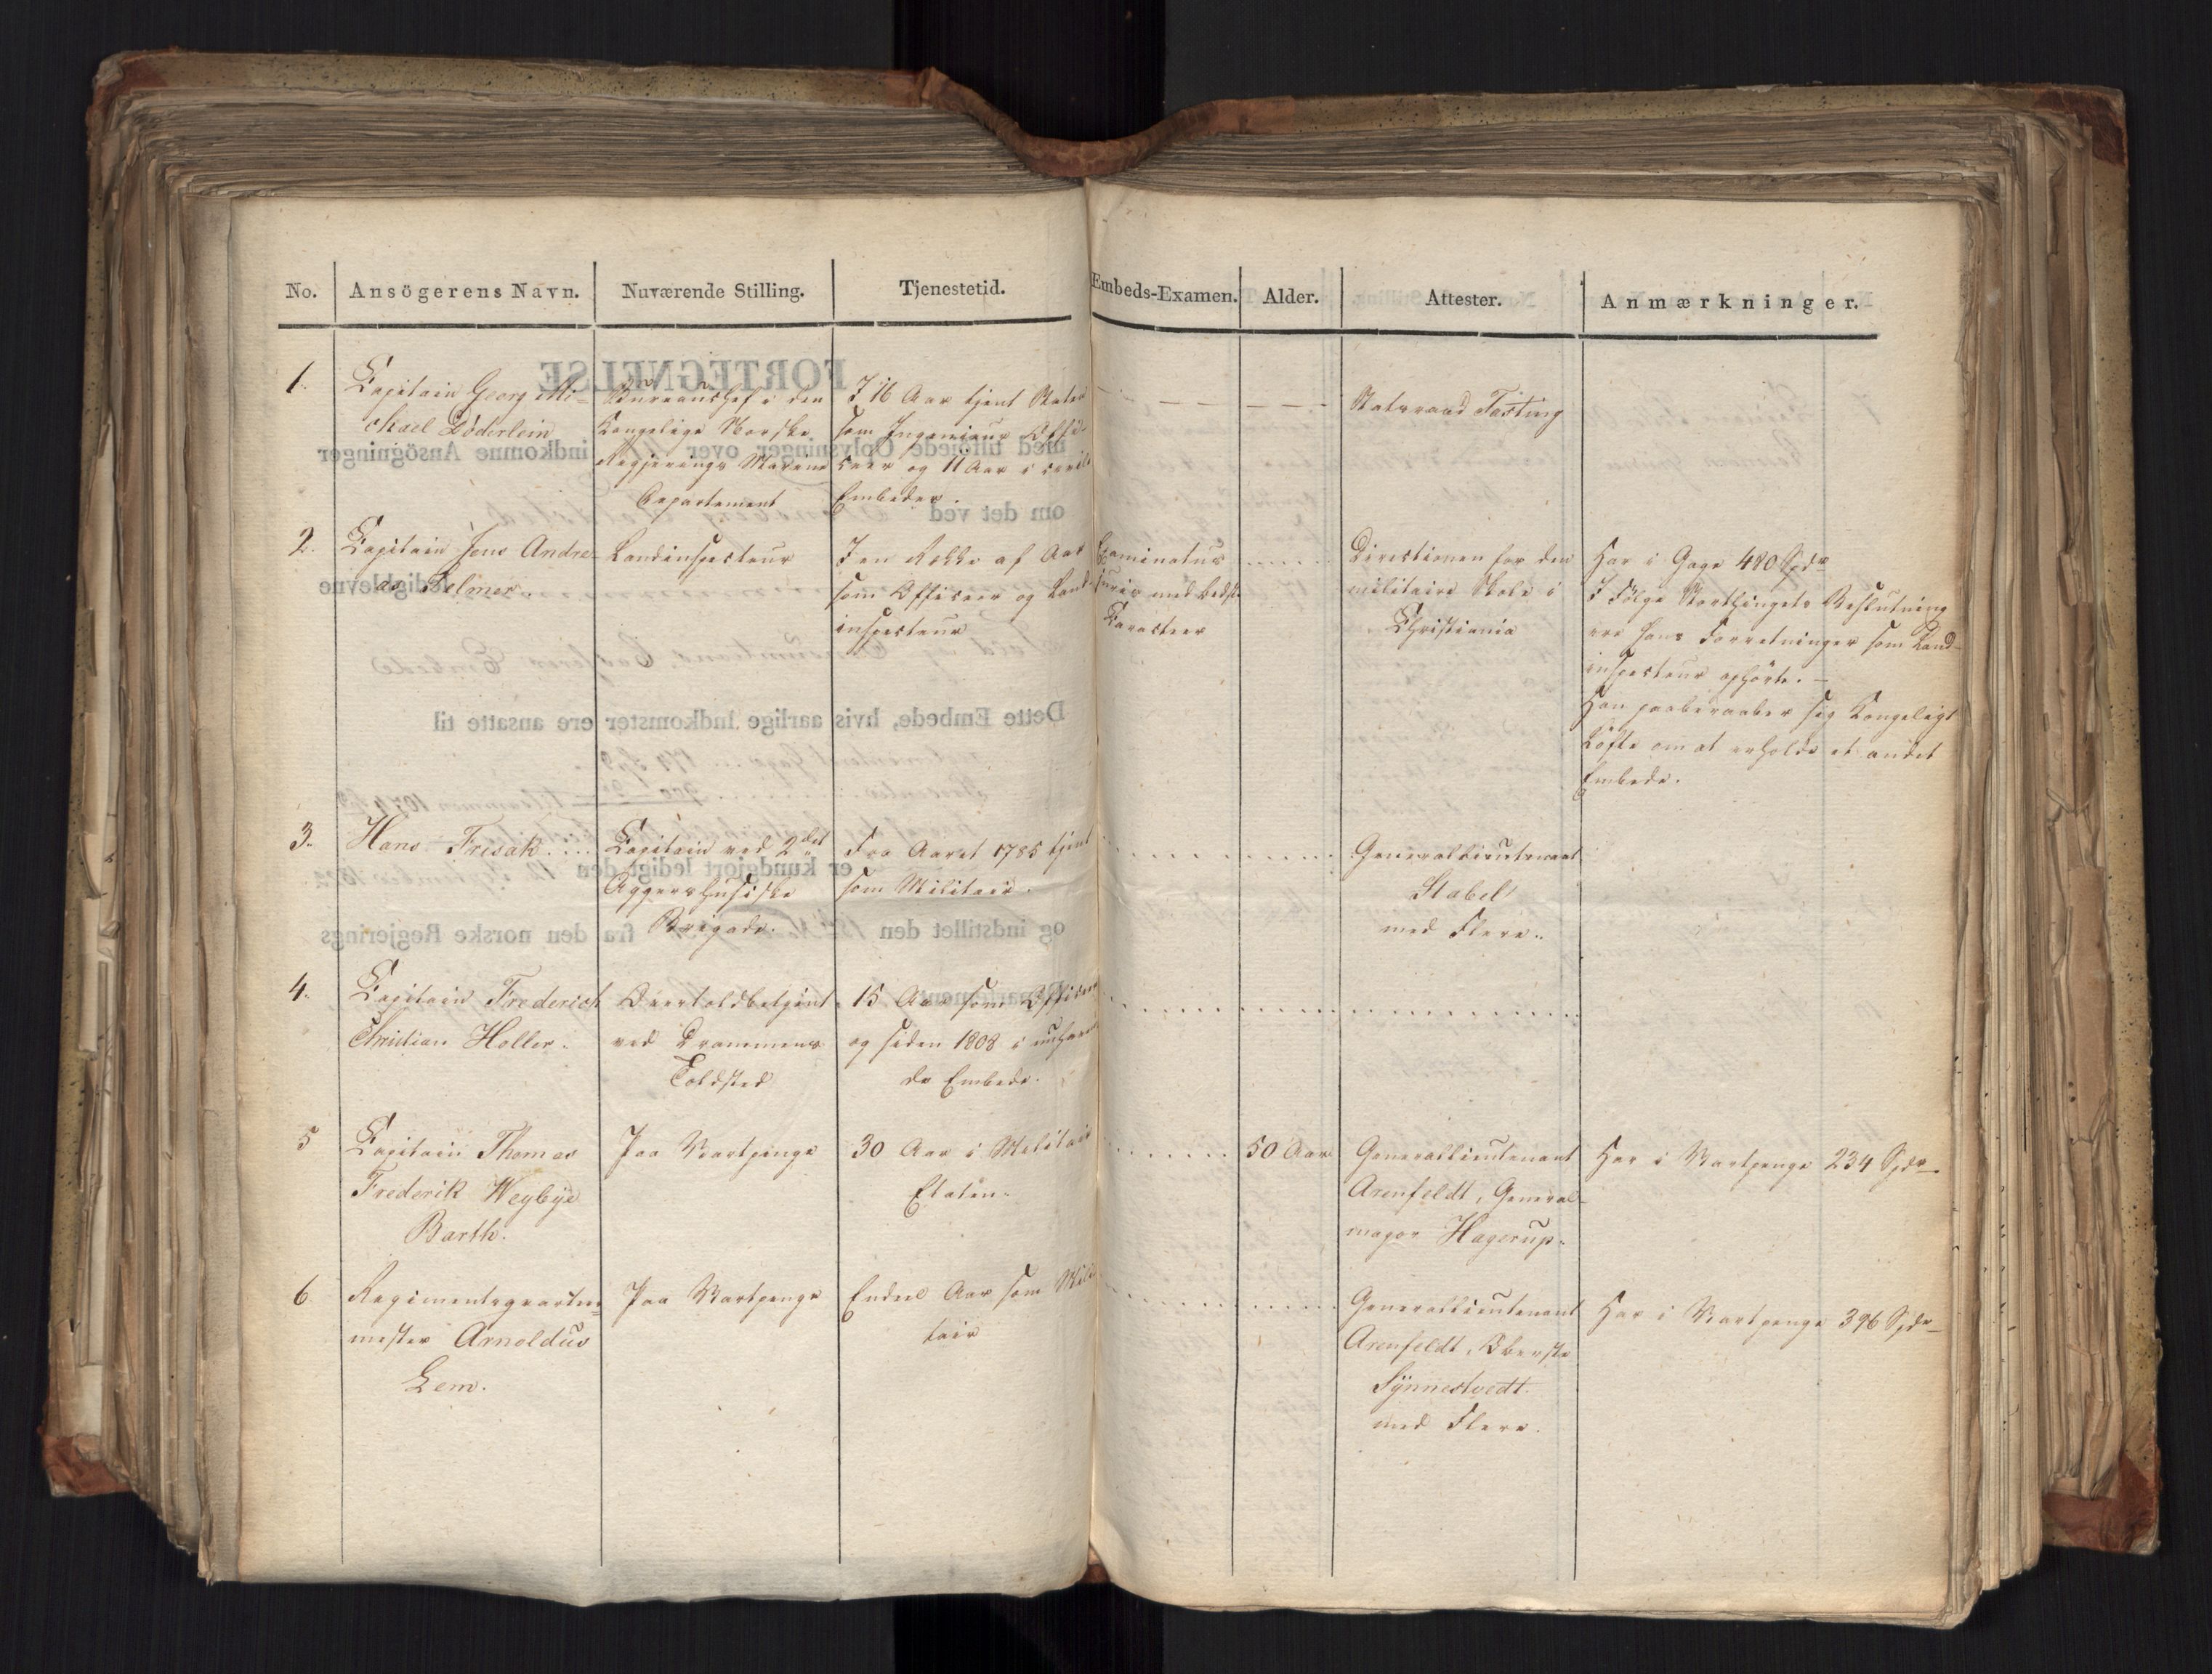 No. Ansögerens Navn. Nuværende Stilling. Tjenestetid. Embeds-Examen. Alder. Attester. Anmærkninger.
1. Capitain Georg Mi-
chael Döderlein
Bureauchef i den
Kongelige Norske
Regjerings Marine
Departement
I 16 Aar tjent Staten
som Ingenieur Offi-
ceer og 11 Aar i civile
Embeder.
Statsraad Fasting
2. Capitain Jens Andre-
as Selmer.
Landinspecteur
I en Række af Aar
som Officeer og Land-
inspecteur
Examinatus
juris med bedste
Caracteer
Directionen for den
militaire Skole i
Christiania
Har i Gage 480 Spdr
I Fölge Storthingets Beslutning
ere hans Forretninger som Land-
inspecteur ophörte. –
Han paaberaaber sig Kongeligt
Löfte om at erholde et andet
Embede.
3. Hans Frisak.
Capitain ved 2det
Aggershusiske
Brigade.
Fra Aaret 1785 tjent
som Militair.
Generallieutenant
Stabel
med Flere.
4. Capitain Frederich
Christian Holler.
Overtoldbetjent
ved Drammens
Toldsted
15 Aar som Officeer
og siden 1808 i nuhaven-
de Embede.
5 Capitain Thomas
Frederik Weybye
Barth.
Paa Vartpenge
30 Aar i Militair
Etaten.
50 Aar
Generallieutenant
Arenfeldt, General-
major Hagerup.
Har i Vartpenge 234 Spdr
6 Regimentsqvarteer-
mester Arnoldus
Lem.
Paa Vartpenge
Endeel Aar som Mili-
tair
Generallieutenant
Arenfeldt, Oberste
Synnestvedt
med Flere.
Har i Vartpenge 396 Spdr